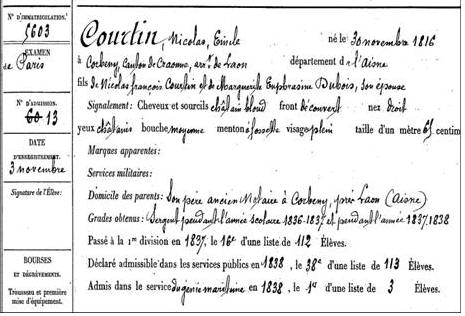 N° D'IMMATRICULATION.
5603
EXAMEN
de Paris
N° D'ADMISSION.
60 13
DATE
D'ENREGISTREMENT.
3 novembre
Signature de l'Élève:
BOURSES
ET DÉGRÈVEMENTS.
Trousseau et première
mise d'équipement.
Courtin, Nicolas, Emile né le 30 novembre 1816
à Corbeny, Canton de Craonne, arrt de Laon département de l'Aisne
fils de Nicolas françois Courtin et de Marguerite Euphrasine Dubois, son épouse
Signalement: Cheveux et sourcils châtain blond front découvert nez droit
yeux châtains bouche moyenne menton à fossette visage plein taille d'un mètre 65 centim
Marques apparentes:
Services militaires:
Domicile des parents: Son père ancien Notaire à Corbeny, près Laon (Aisne)
Grades obtenus: Sergent pendant l'année scolaire 1836-1837 et pendant l'année 1837, 1838
Passé à la 1re division en 1837, le 16e d'une liste de 112 Élèves.
Déclaré admissible dans les services publics en 1838, le 38e d'une liste de 113 Élèves.
Admis dans le service du génie maritime en 1838, le 1er d'une liste de 3 Élèves.